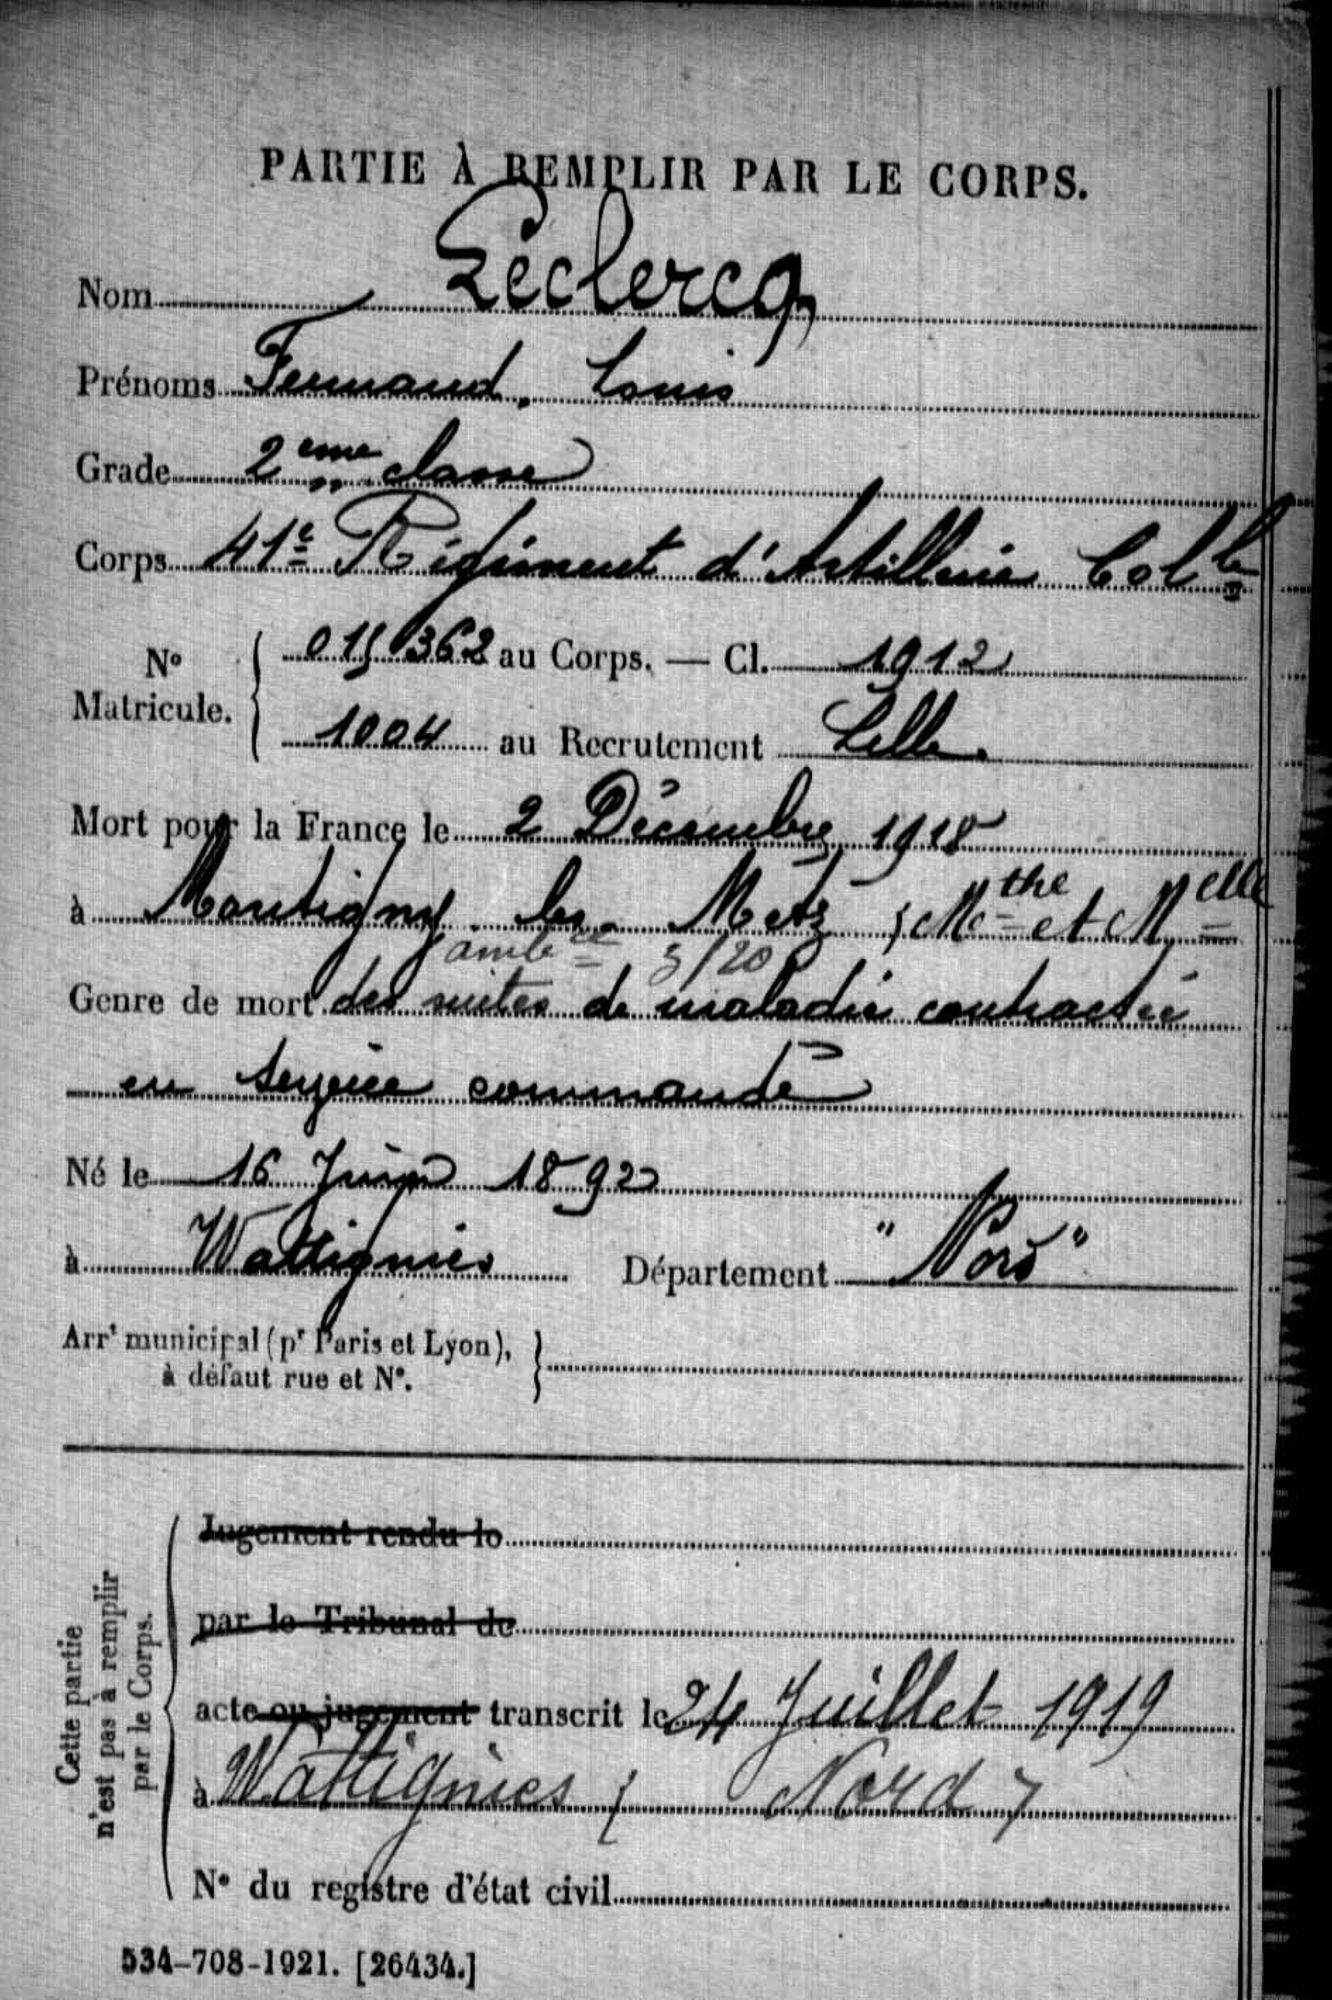 PARTIE À REMPLIR PAR LE CORPS.
Nom Leclercq
Prénoms Fernand, Louis
Grade 2eme classe
Corps 41e Régiment d'Artillerie Colle
No Matricule. { 015362 au Corps. — Cl. 1912
1004 au Recrutement Lille.
Mort pour la France le 2 Décembre 1918
à Montigny les Metz (Mthe et Melle
ambce 3/20
Genre de mort des suites de maladie contractée
en service commandé
Né le 16 Juin 1892
à Wattignies Département "Nord"
Arrt municipal (pr Paris et Lyon), }
à défaut rue et No.
Cette partie
n'est pas à remplir
par le Corps.
Jugement rendu le
par le Tribunal de
acte ou jugement transcrit le 24 Juillet 1919
à Wattignies (Nord)
No du registre d'état civil
534-708-1921. [26434.]